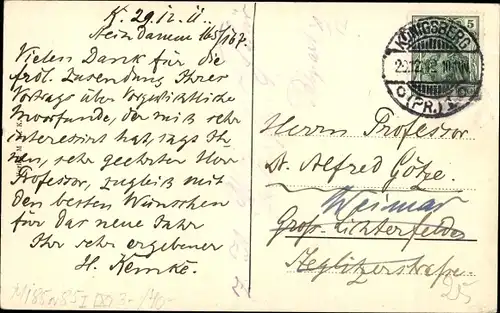 K. 29.12.11.
Steindamm 165/167.
Vielen Dank für die
frdl. Zusendung Ihres
Vortrags über Vorgeschichtliche
Moorfunde, der mich sehr
interessiert hat, sagt Ih-
nen, sehr geehrter Herr
Professor, zugleich mit
den besten Wünschen
für das neue Jahr
Ihr sehr ergebener
H. Kemke.
5
KÖNIGSBERG
(PR.)
Herrn Professor
Dr. Alfred Götze.
Weimar
Groß-Lichterfelde
Steglitzerstraße